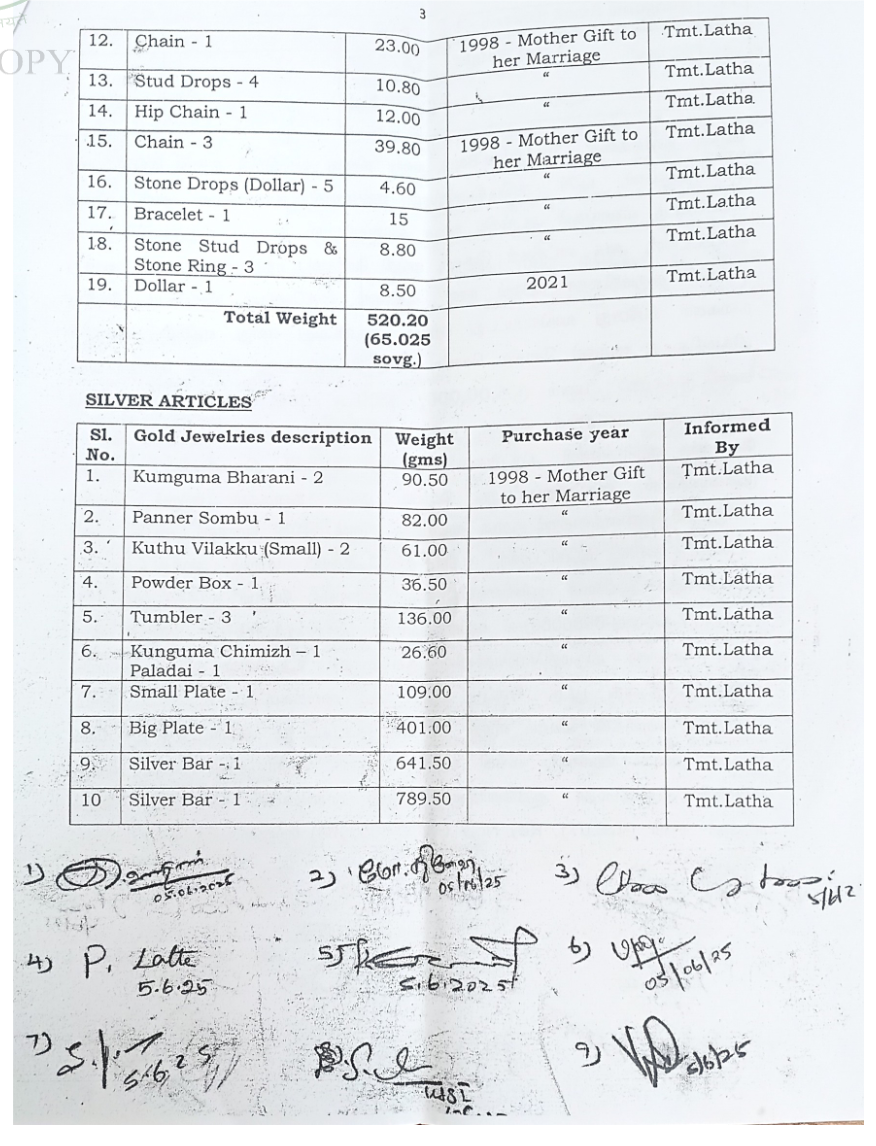 3
OPY
12. Chain - 1 23.00 1998 - Mother Gift to her Marriage Tmt.Latha
13. Stud Drops - 4 10.80 “ Tmt.Latha
14. Hip Chain - 1 12.00 “ Tmt.Latha.
15. Chain - 3 39.80 1998 - Mother Gift to her Marriage Tmt.Latha
16. Stone Drops (Dollar) - 5 4.60 “ Tmt.Latha
17. Bracelet - 1 15 “ Tmt.Latha
18. Stone Stud Drops & Stone Ring - 3 8.80 “ Tmt.Latha
19. Dollar - 1 8.50 2021 Tmt.Latha
Total Weight 520.20 (65.025 sovg.)
SILVER ARTICLES
Sl. No. Gold Jewelries description Weight (gms) Purchase year Informed By
1. Kumguma Bharani - 2 90.50 1998 - Mother Gift to her Marriage Tmt.Latha
2. Panner Sombu - 1 82.00 “ Tmt.Latha
3. Kuthu Vilakku (Small) - 2 61.00 “ Tmt.Latha
4. Powder Box - 1 36.50 “ Tmt.Latha
5. Tumbler - 3 136.00 “ Tmt.Latha
6. Kunguma Chimizh – 1 Paladai - 1 26.60 “ Tmt.Latha
7. Small Plate - 1 109.00 “ Tmt.Latha
8. Big Plate - 1 401.00 “ Tmt.Latha
9. Silver Bar - 1 641.50 “ Tmt.Latha
10 Silver Bar - 1 789.50 “ Tmt.Latha
1) 05.06.2025
2) 05/06/25
3) 5/6/2
4) P. Latte
5.6.25
5) 5.6.2025
6) 05/06/25
7) 5.6.25
9) 5/6/25